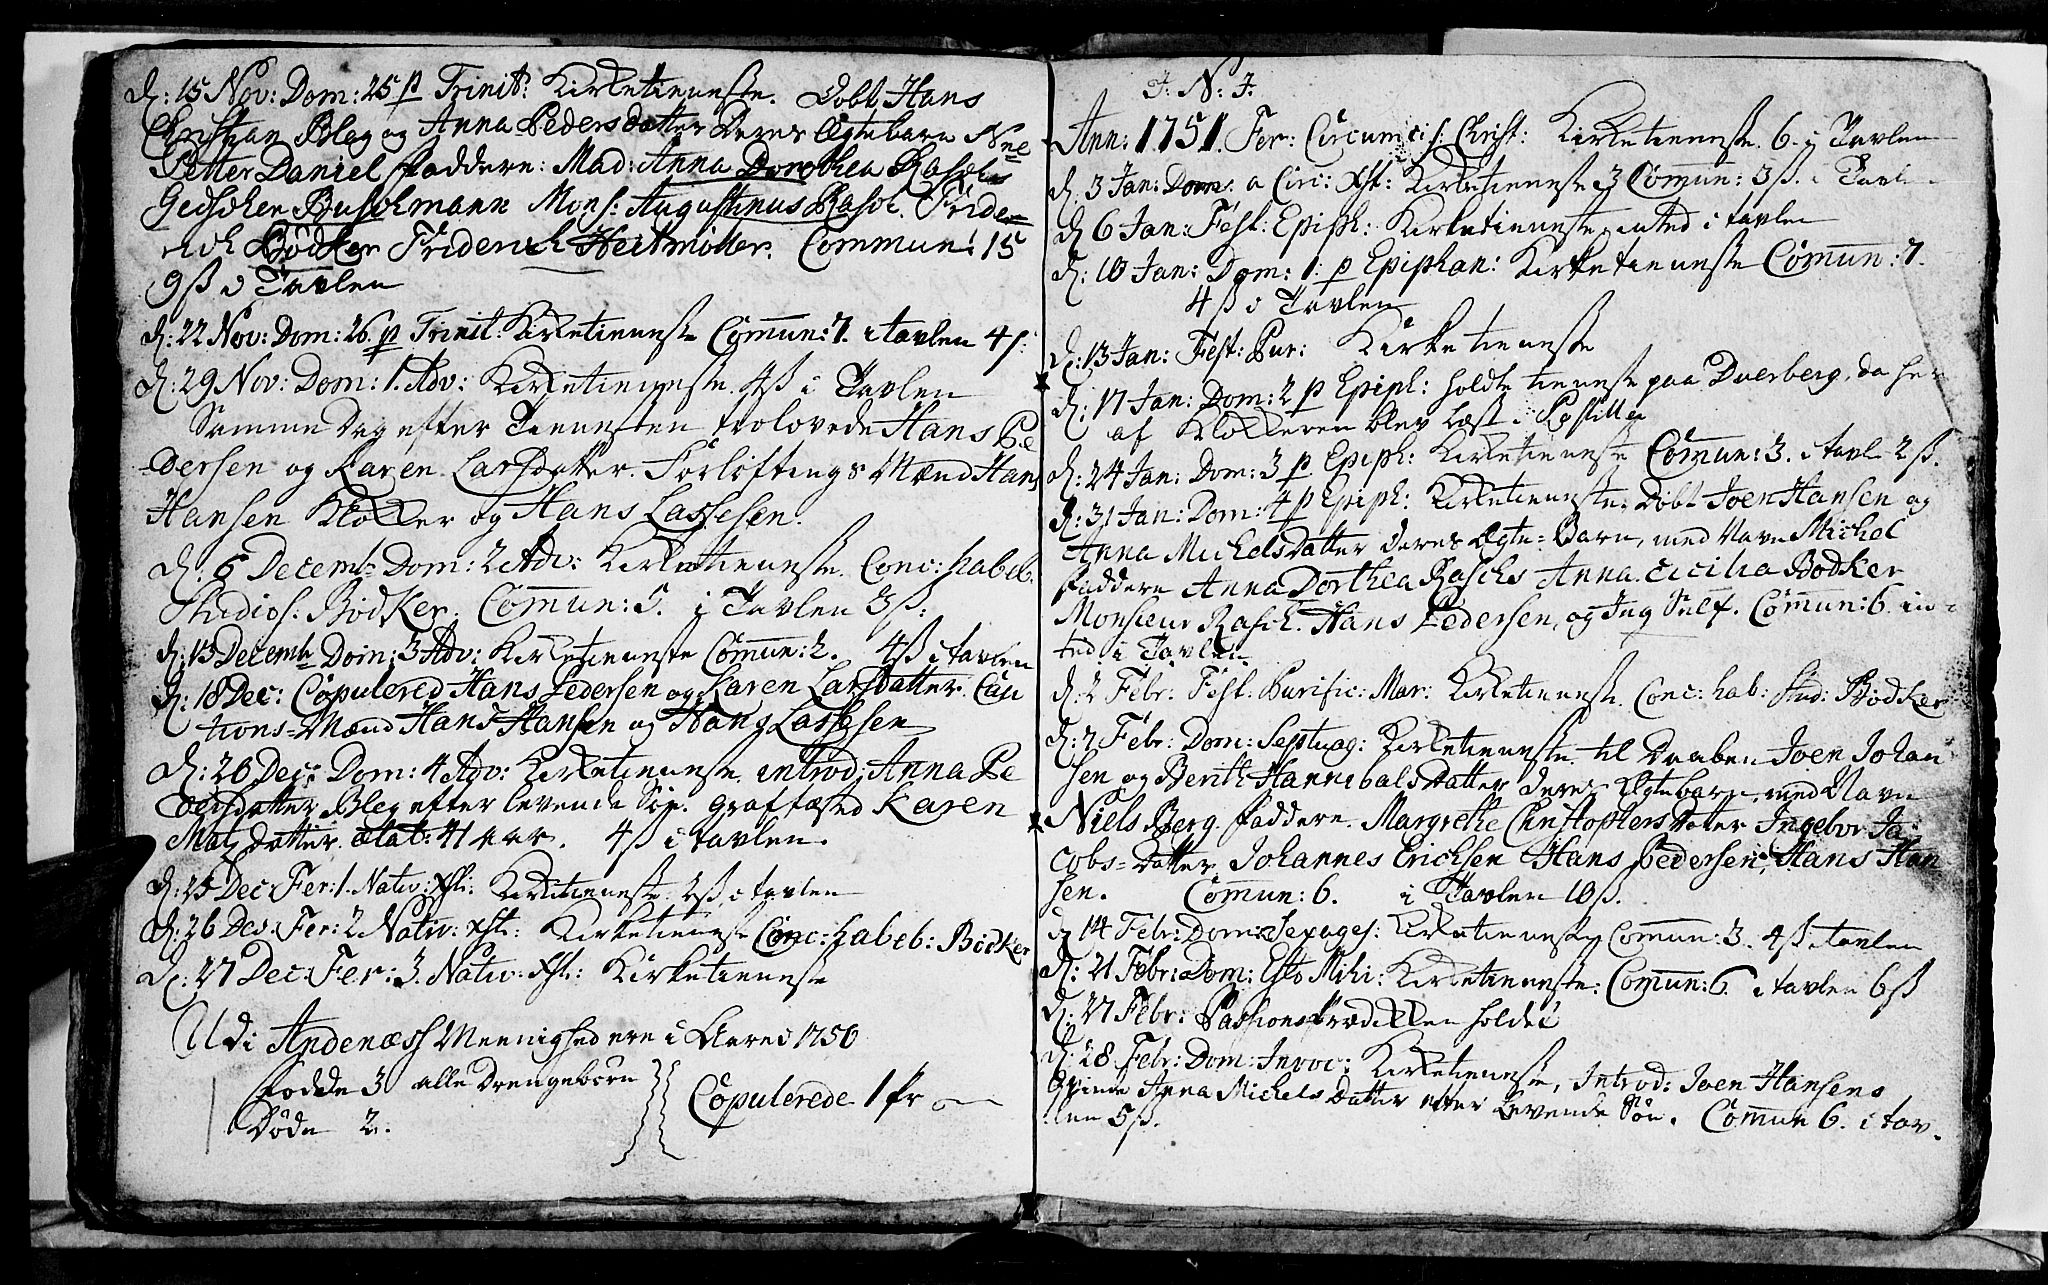 d: 15 Nov: Dom: 25 p Trinit: Kirketienneste. Døbt Hans
Christian Bleg og Anna Pedersdatter Deres Ægtebarn N̄ne
Petter Daniel Faddere: Mad: Anna Dorothea Rasch
Gedschen Buschmann Mons: Augustinus Rasch. Frider
rich Bödker Friderich Heitmöller. Commun: 15
9 ß i Tavlen
d: 22 Nov: Dom: 26. p Trinit: Kirketienneste Com̄un: 7. i tavlen 4 ß:
d: 29 Nov: Dom: 1. Adv: Kirketienneste 4 ß i Tavlen
Samme Dag efter Tiennesten trolovede Hans Pe
dersen og Karen Larsdatter. Forløftings Mænd Hans
Hansen Klokker og Hans Lassesen.
d. 6 Decemb: Dom: 2 Adv: Kirketienneste. Conc: habeb.
Studios: Bödker. Com̄un: 5. i Tavlen 3 ß:
d: 13 Decemb Dom: 3 Adv: Kirketienneste Com̄un: 2. 4 ß i tavlen
d: 18 Dec: Copulered Hans Pedersen og Karen Larsdatter. Cau
tions-Mænd Hans Hansen og Hans Lassesen
d: 20 Dec: Dom: 4 Adv: Kirketienneste introd: Anna Pe
dersdatter Bleg efter levende Søn. Graffæsted Karen
Matz datter ætat: 41 aar. 4 ß i tavlen.
d: 25 Dec: Fer: 1. Nativ: Xsti: Kirketienneste 2 ß i tavlen
d: 26 Dec: Fer: 2 Nativ: Xsti: Kirketienneste Conc: habeb: Bödker
d: 27 Dec: Fer: 3. Nativ: Xsti: Kirketienneste
Udi Andenæss Meenighed ere i Aaret 1750
Fødde 3 alle Drengebørn
Copulerede 1 Pr
Døde 2.
J. N. J.
Ann: 1751. Fer: Circumcis. Christ: Kirketienneste. 6. i Tavlen
d. 3 Jan: Dom. a Circ: Xst: Kirketienneste 3 Com̄un: 3 ß. i Tavl
d 6 Jan: Fest: Epiph: Kirketienneste inted i tavlen
d: 10 Jan: Dom: 1: p Epiphan: Kirketienneste Com̄un: 7.
4 ß i Tavlen
d: 13 Jan: Fest: Pur: Kirketienneste
d: 17 Jan: Dom: 2 p Epiph: holdt tienneste paa Dverberg, da her
af Klokkeren blev læst i Postillen
d: 24 Jan: Dom: 3 p Epiph: Kirketienneste Com̄un: 3. i tavl 2 ß.
d: 31 Jan: Dom: 4 p Epiph: Kirketienneste. Døbt Joen Hansen og
Anna Michelsdatter deres Ægte-Barn, med Navn Michel
Faddere Anna Dorthea Raschs Anna Cicilia Bödker
Monsieur Rasch. Hans Pedersen, og Jeg Self. Com̄un: 6. in-
ted i Tavlen
d. 2 Febr: Fest. Purific: Mar: Kirketienneste. Conc: hab: Stud: Bödker
d: 7 Febr: Dom: Septuag: Kirketienneste. til Daaben Joen Johan
sen og Berith Hannibalsdatter deres Ægtebarn, med Navn
Niels Berg. Faddere. Margrethe Christophersdatter Ingebor Ja-
cobs-datter Johannes Erichsen Hans Pedersen, Hans Han
sen. Com̄un: 6. i Tavlen 10 ß.
d 14 Febr: Dom: Sexages: Kirketienneste Com̄un: 3. 4 ß i tavlen
d: 21 Febr: Dom: Esto Mihi: Kirketienneste: Com̄un: 6. i tavlen 6 ß
d: 27 Febr: Passions Prædikken holdt
d: 28. Febr: Dom: Invoc: Kirketienneste, Introd: Joen Hansens
Qvinde Anna Michelsdatter efter Levende Søn. Com̄un 6. i tav-
len 5 ß.